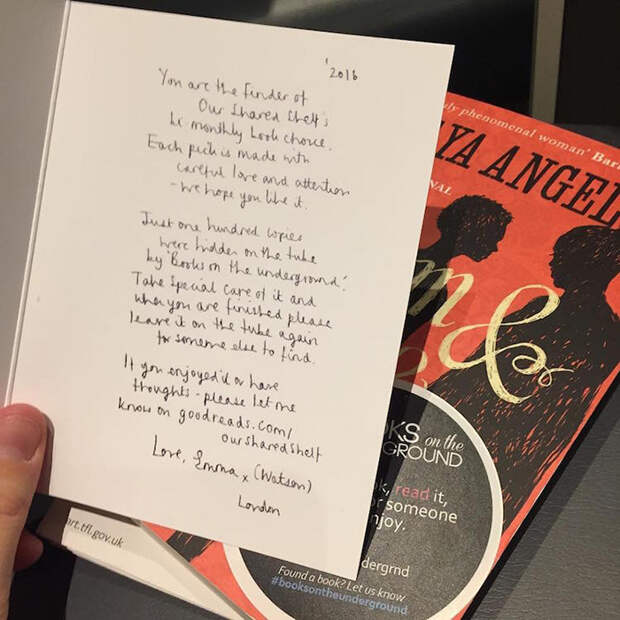 '2016
You are the finder of
Our Shared Shelf's
bi monthly book choice.
Each pick is made with
careful love and attention
- we hope you like it.
Just one hundred copies
were hidden on the tube
by 'Books on the underground'.
Take special care of it and
when you are finished please
leave it on the tube again
for someone else to find.
If you enjoyed it or have
thoughts - please let me
know on goodreads.com/
oursharedshelf
Love, Emma x (Watson)
London
phenomenal woman' Bar
YA ANGEL
NAL
m &
KS on the
GROUND
k, read it,
or someone
njoy.
dergrnd
Found a book? Let us know
#booksontheunderground
art.tfl.gov.uk